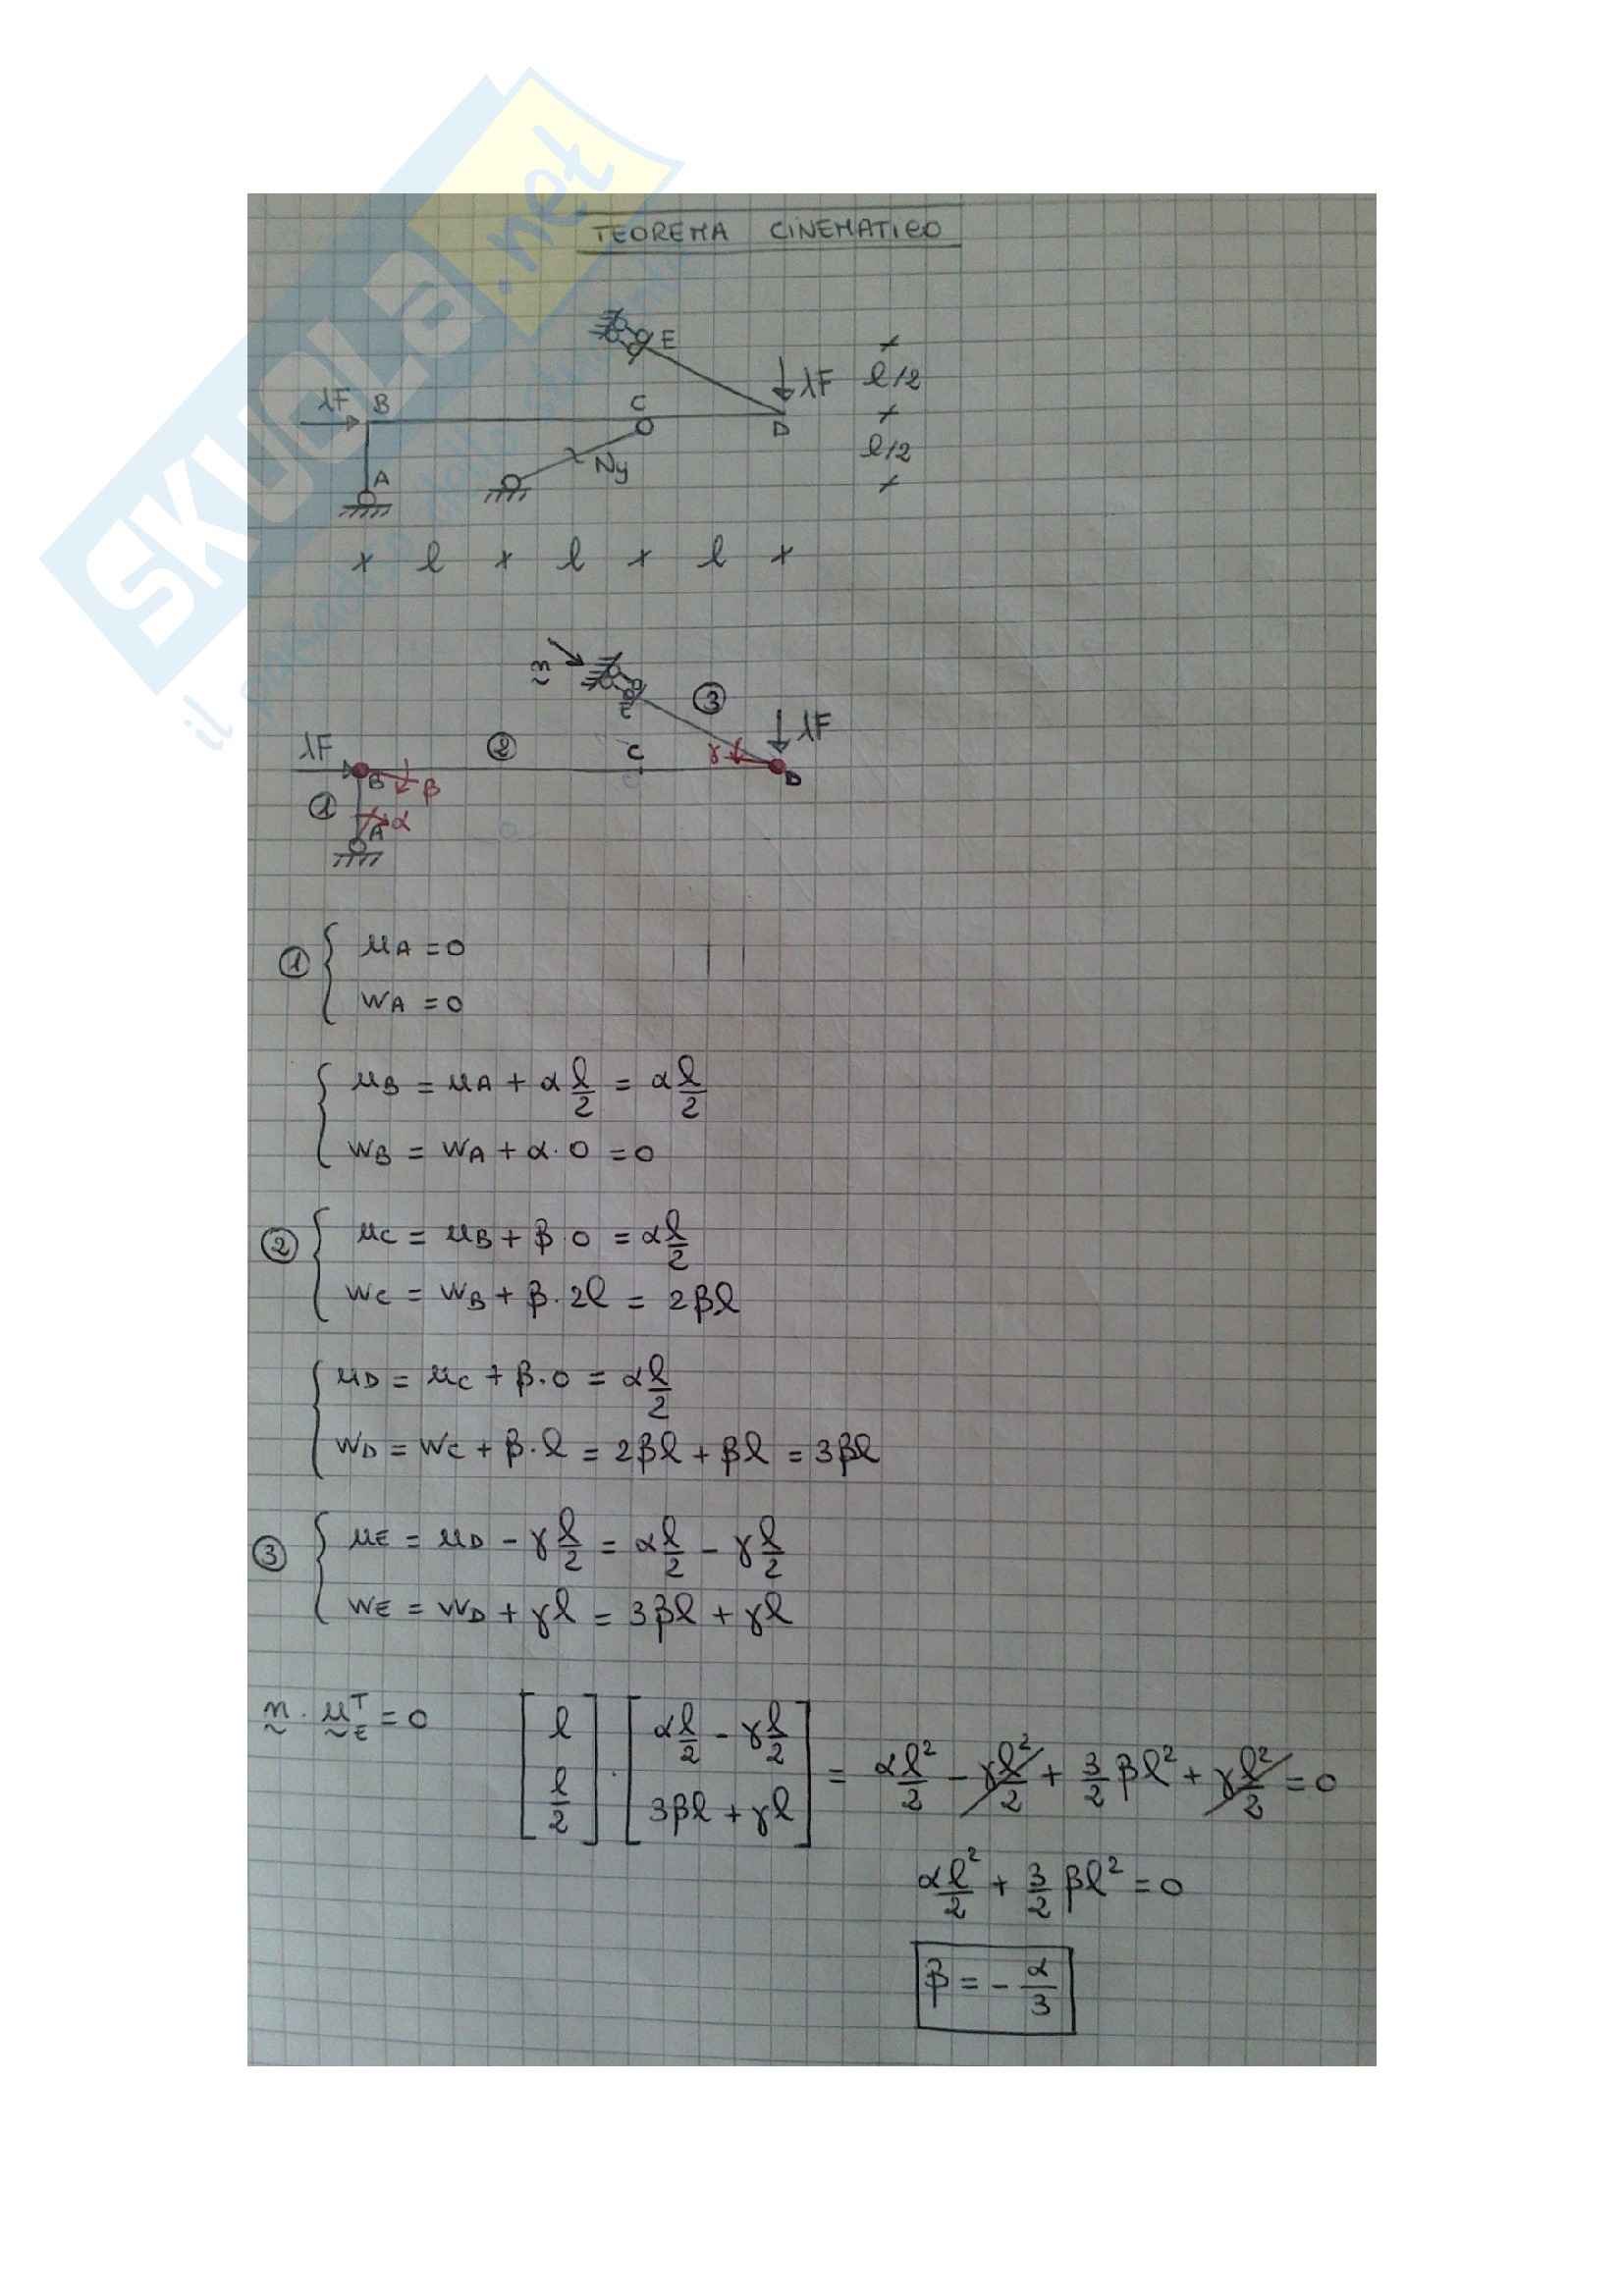 SKUOLa.net
TEOREMA CINEMATICO
E
λF
l/2
λF
B
C
D
l/2
Ny
A
+ l + l + l +
n
E
③
λF
λF
②
C
γ
B
β
D
①
α
A
① { uA = 0
wA = 0
{ uB = uA + α l/2 = α l/2
wB = wA + α · 0 = 0
② { uC = uB + β 0 = α l/2
wC = wB + β · 2l = 2βl
{ uD = uC + β · 0 = α l/2
wD = wC + β · l = 2βl + βl = 3βl
③ { uE = uD - γ l/2 = α l/2 - γ l/2
wE = wD + γl = 3βl + γl
n · uE^T = 0 [ l ; l/2 ] · [ α l/2 - γ l/2 ; 3βl + γl ] = α l²/2 - γ l²/2 + 3/2 βl² + γ l²/2 = 0
α l²/2 + 3/2 βl² = 0
β = - α/3